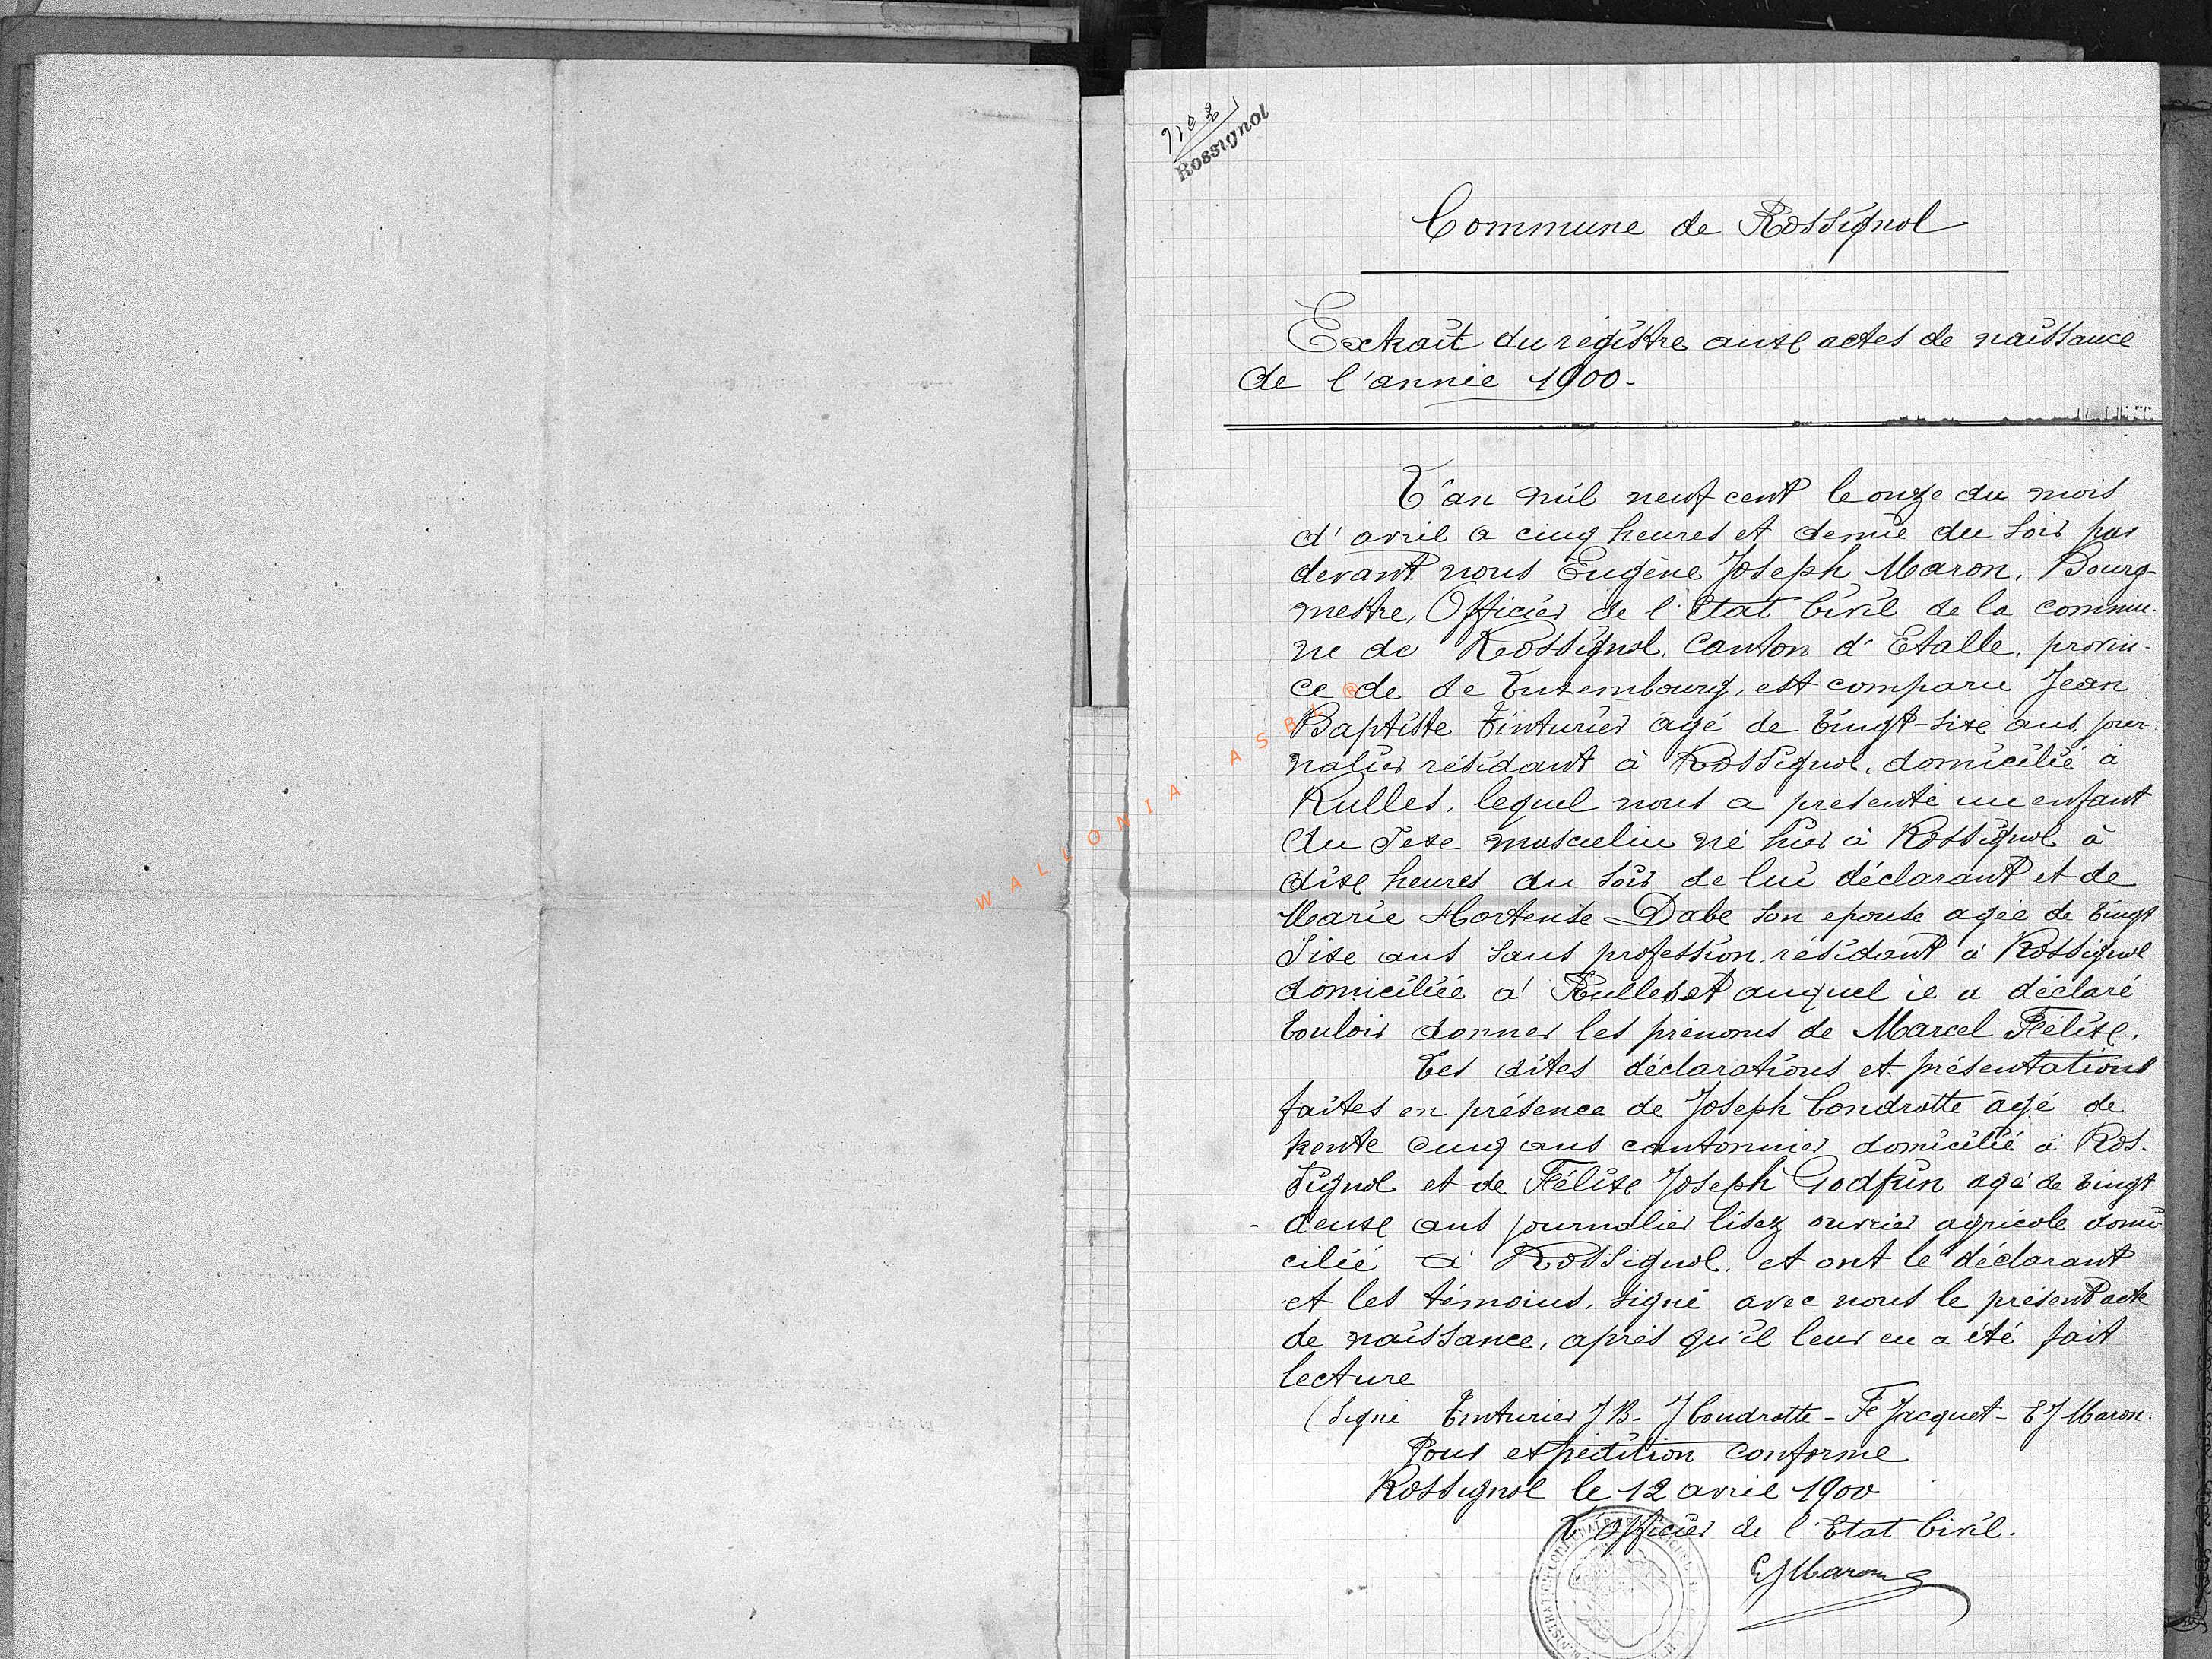 Rossignol
Commune de Rossignol
Extrait du registre aux actes de naissance
de l'année 1900.
L'an mil neuf cent le onze du mois
d'avril a cinq heures et demie du soir par
devant nous Eugène Joseph Maron, Bourg-
mestre, Officier de l'Etat Civil de la commu-
ne de Rossignol, Canton d'Etalle, provin-
ce de de Luxembourg, est comparu Jean
Baptiste Tinturier âgé de Vingt-six ans, jour-
nalier résidant à Rossignol, domicilié à
Rulles, lequel nous a présenté un enfant
du sexe masculin né hier à Rossignol à
dix heures du soir de lui déclarant et de
Marie Hortense Dabe son epouse agée de Vingt
six ans sans profession, résidant à Rossignol
domiciliée à Rulles et auquel il a déclaré
Vouloir donner les prénoms de Marcel Félix.
Les dites déclarations et présentations
faites en présence de Joseph Condrotte âgé de
trente cinq ans cantonnier domicilié à Ros-
signol et de Félix Joseph Godfrin agé de Vingt
deux ans journalier lisez ouvrier agricole domi-
cilié à Rossignol, et ont le déclarant
et les témoins, signé avec nous le présent acte
de naissance, après qu'il leur en a été fait
lecture
(Signé Tinturier J B - J Condrotte - Fx Jacquet - E J Maron.
Pour expédition conforme
Rossignol le 12 avril 1900
L'Officier de l'Etat Civil.
E J Maron
WALLONIA ASBL ®